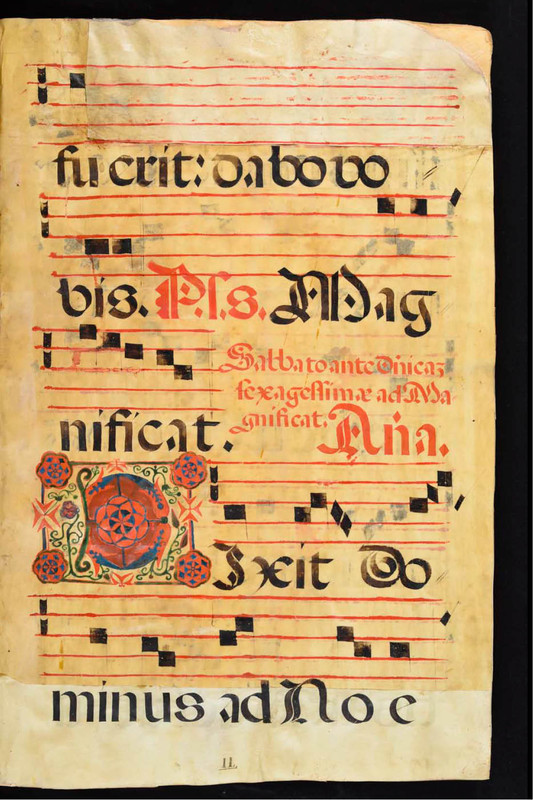 fuerit: dabo vo
bis. Ps. Mag
Sabbato ante Dnicaz
sexagessimæ ad Ma
gnificat. Aña.
nificat.
Dixit Do
minus ad Noe
11.